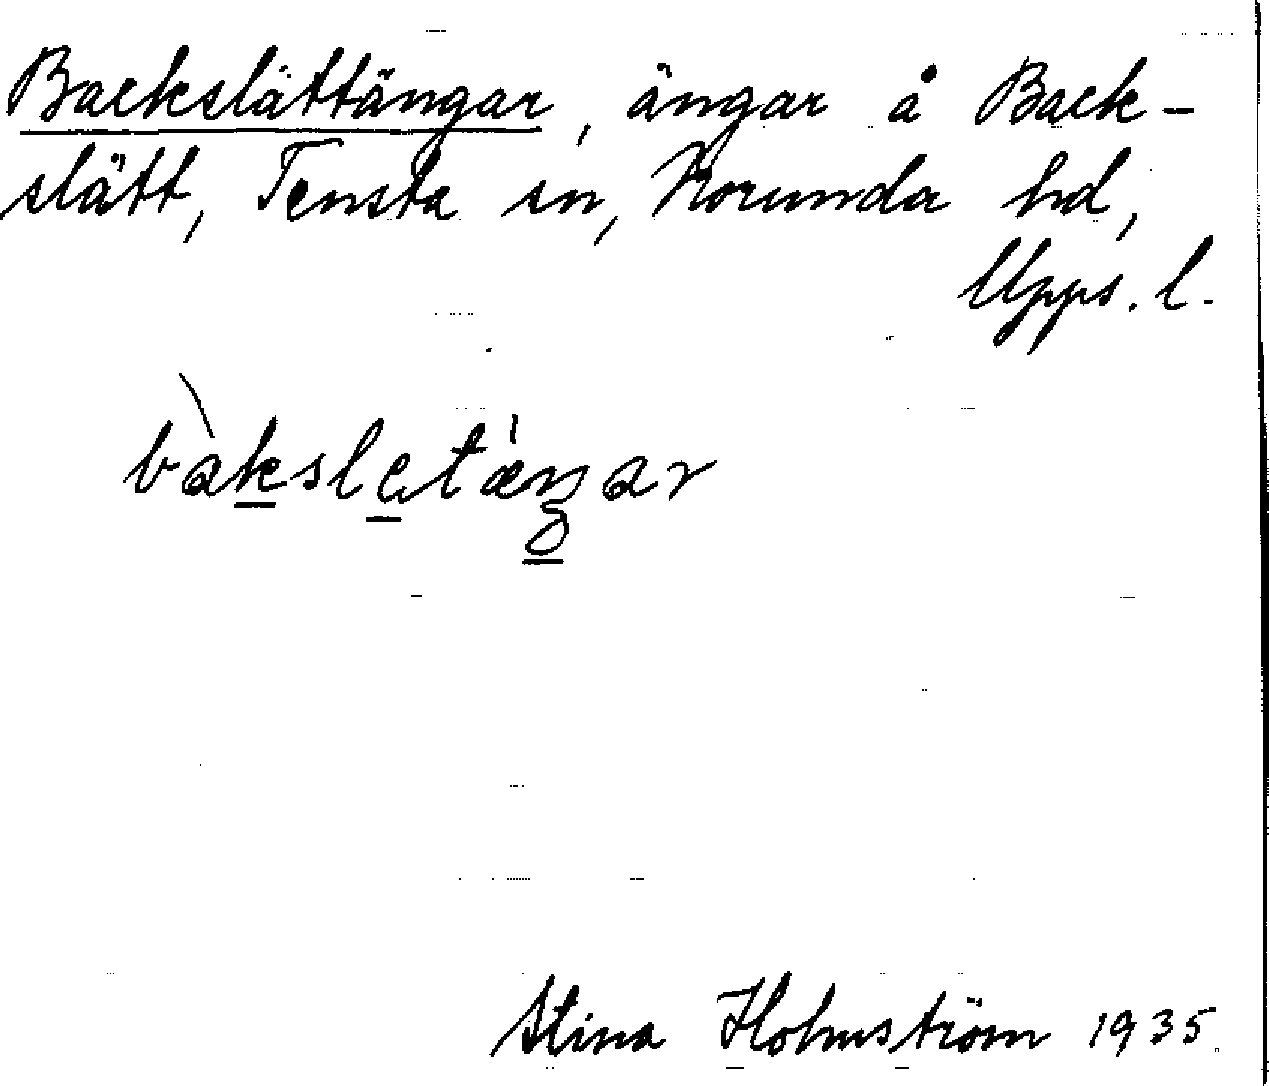 Backslättängar, ängar å Back-
slätt, Tensta sn, Norunda hd,
Upps. l.
bàksletæ̍ŋar
Stina Holmström 1935.